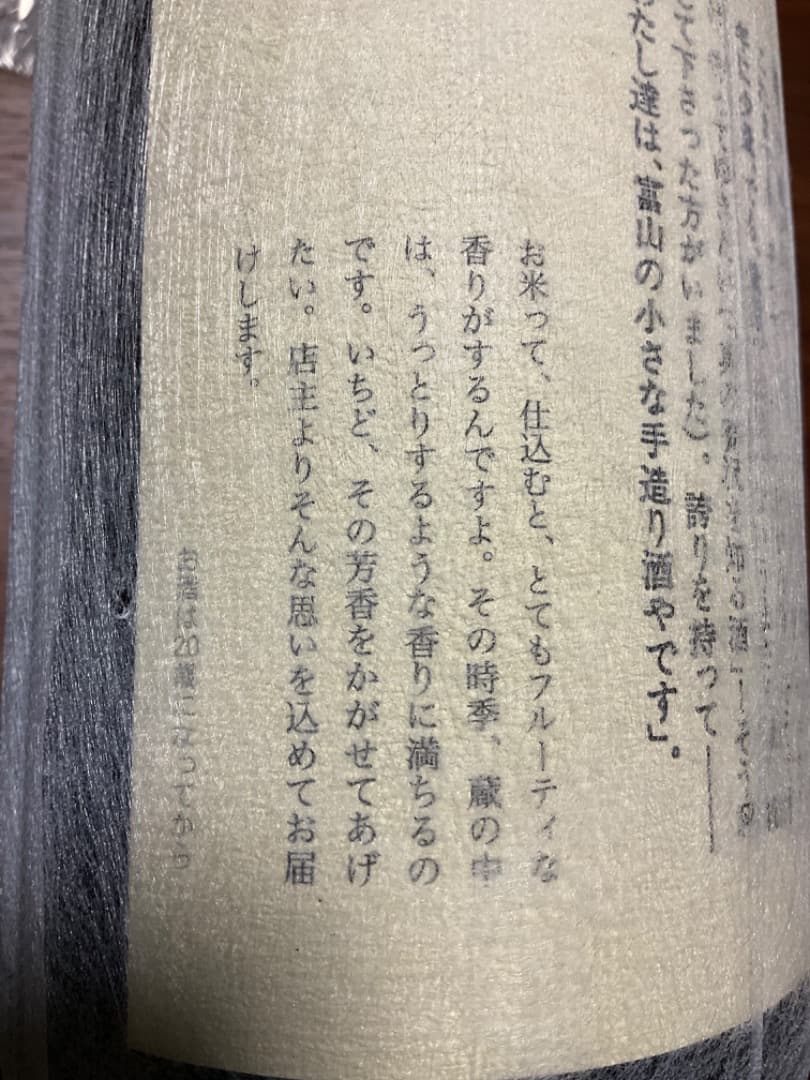 て下さった方がいました)。誇りを持って──
たし達は、富山の小さな手造り酒やです」。
お米って、仕込むと、とてもフルーティな
香りがするんですよ。その時季、蔵の中
は、うっとりするような香りに満ちるの
です。いちど、その芳香をかがせてあげ
たい。店主よりそんな思いを込めてお届
けします。
お酒は20歳になってから